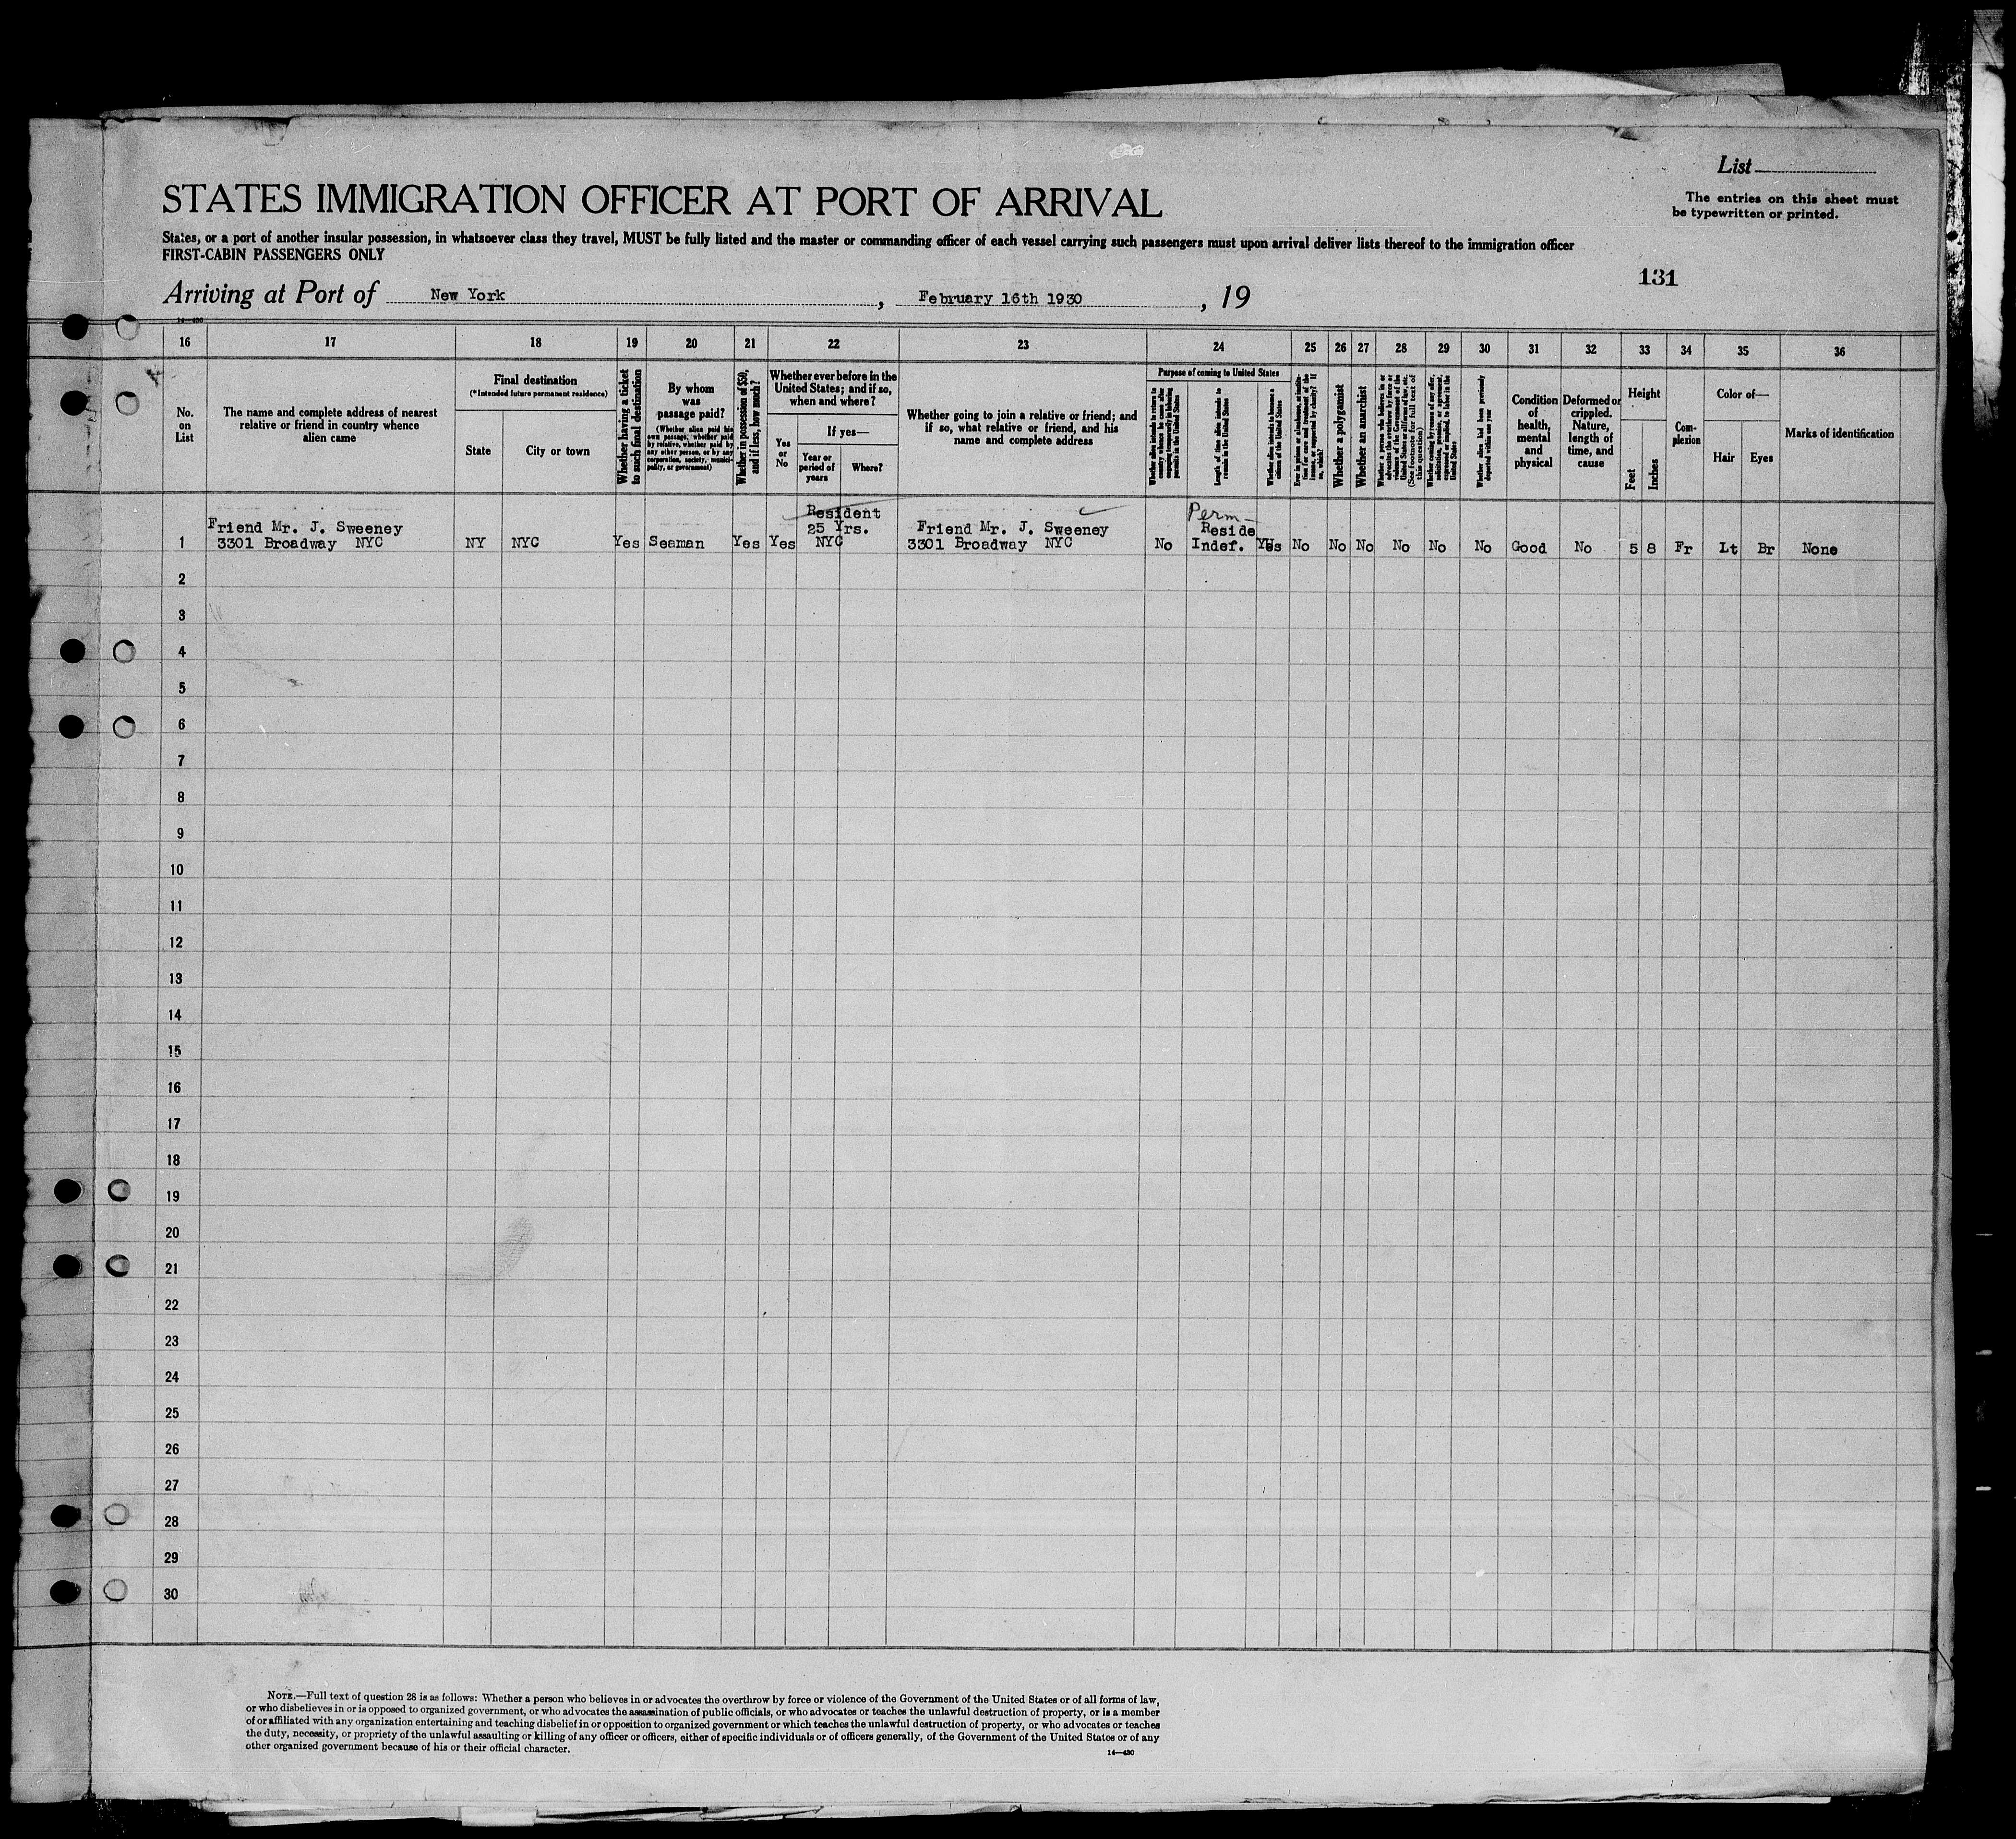 List
The entries on this sheet must
be typewritten or printed.
STATES IMMIGRATION OFFICER AT PORT OF ARRIVAL
States, or a port of another insular possession, in whatsoever class they travel, MUST be fully listed and the master or commanding officer of each vessel carrying such passengers must upon arrival deliver lists thereof to the immigration officer
FIRST-CABIN PASSENGERS ONLY
131
Arriving at Port of New York, February 16th 1930, 19
14—430
16 17 18 19 20 21 22 23 24 25 26 27 28 29 30 31 32 33 34 35 36
No.
on
List
The name and complete address of nearest
relative or friend in country whence
alien came
Final destination
(*Intended future permanent residence)
State
City or town
Whether having a ticket
to such final destination
By whom
was
passage paid?
(Whether alien paid his
own passage, whether paid
by relative, whether paid by
any other person, or by any
corporation, society, munici-
pality, or government)
Whether in possession of $50,
and if less, how much?
Whether ever before in the
United States; and if so,
when and where?
Yes
or
No
If yes—
Year or
period of
years
Where?
Whether going to join a relative or friend; and
if so, what relative or friend, and his
name and complete address
Purpose of coming to United States
Whether alien intends to return to
country whence he came after
engaging temporarily in laboring
pursuits in the United States
Length of time alien intends to
remain in the United States
Whether alien intends to become a
citizen of the United States
Ever in prison or almshouse, or institu-
tion for care and treatment of the
insane, or supported by charity? If
so, which?
Whether a polygamist
Whether an anarchist
Whether a person who believes in or
advocates the overthrow by force or
violence of the Government of the
United States or all forms of law, etc.
(See footnote for full text of
this question)
Whether coming by reason of any offer,
solicitation, promise, or agreement,
expressed or implied, to labor in the
United States
Whether alien had been previously
deported within one year
Condition
of
health,
mental
and
physical
Deformed or
crippled.
Nature,
length of
time, and
cause
Height
Feet
Inches
Com-
plexion
Color of—
Hair
Eyes
Marks of identification
Perm—
Resident
Friend Mr. J. Sweeney 25 Yrs. Friend Mr. J. Sweeney Reside
1 3301 Broadway NYC NY NYC Yes Seaman Yes Yes NYC 3301 Broadway NYC No Indef. Yes No No No No No No Good No 5 8 Fr Lt Br None
2
3
4
5
6
7
8
9
10
11
12
13
14
15
16
17
18
19
20
21
22
23
24
25
26
27
28
29
30
NOTE.—Full text of question 28 is as follows: Whether a person who believes in or advocates the overthrow by force or violence of the Government of the United States or of all forms of law,
or who disbelieves in or is opposed to organized government, or who advocates the assassination of public officials, or who advocates or teaches the unlawful destruction of property, or is a member
of or affiliated with any organization entertaining and teaching disbelief in or opposition to organized government or which teaches the unlawful destruction of property, or who advocates or teaches
the duty, necessity, or propriety of the unlawful assaulting or killing of any officer or officers, either of specific individuals or of officers generally, of the Government of the United States or of any
other organized government because of his or their official character.
14—430